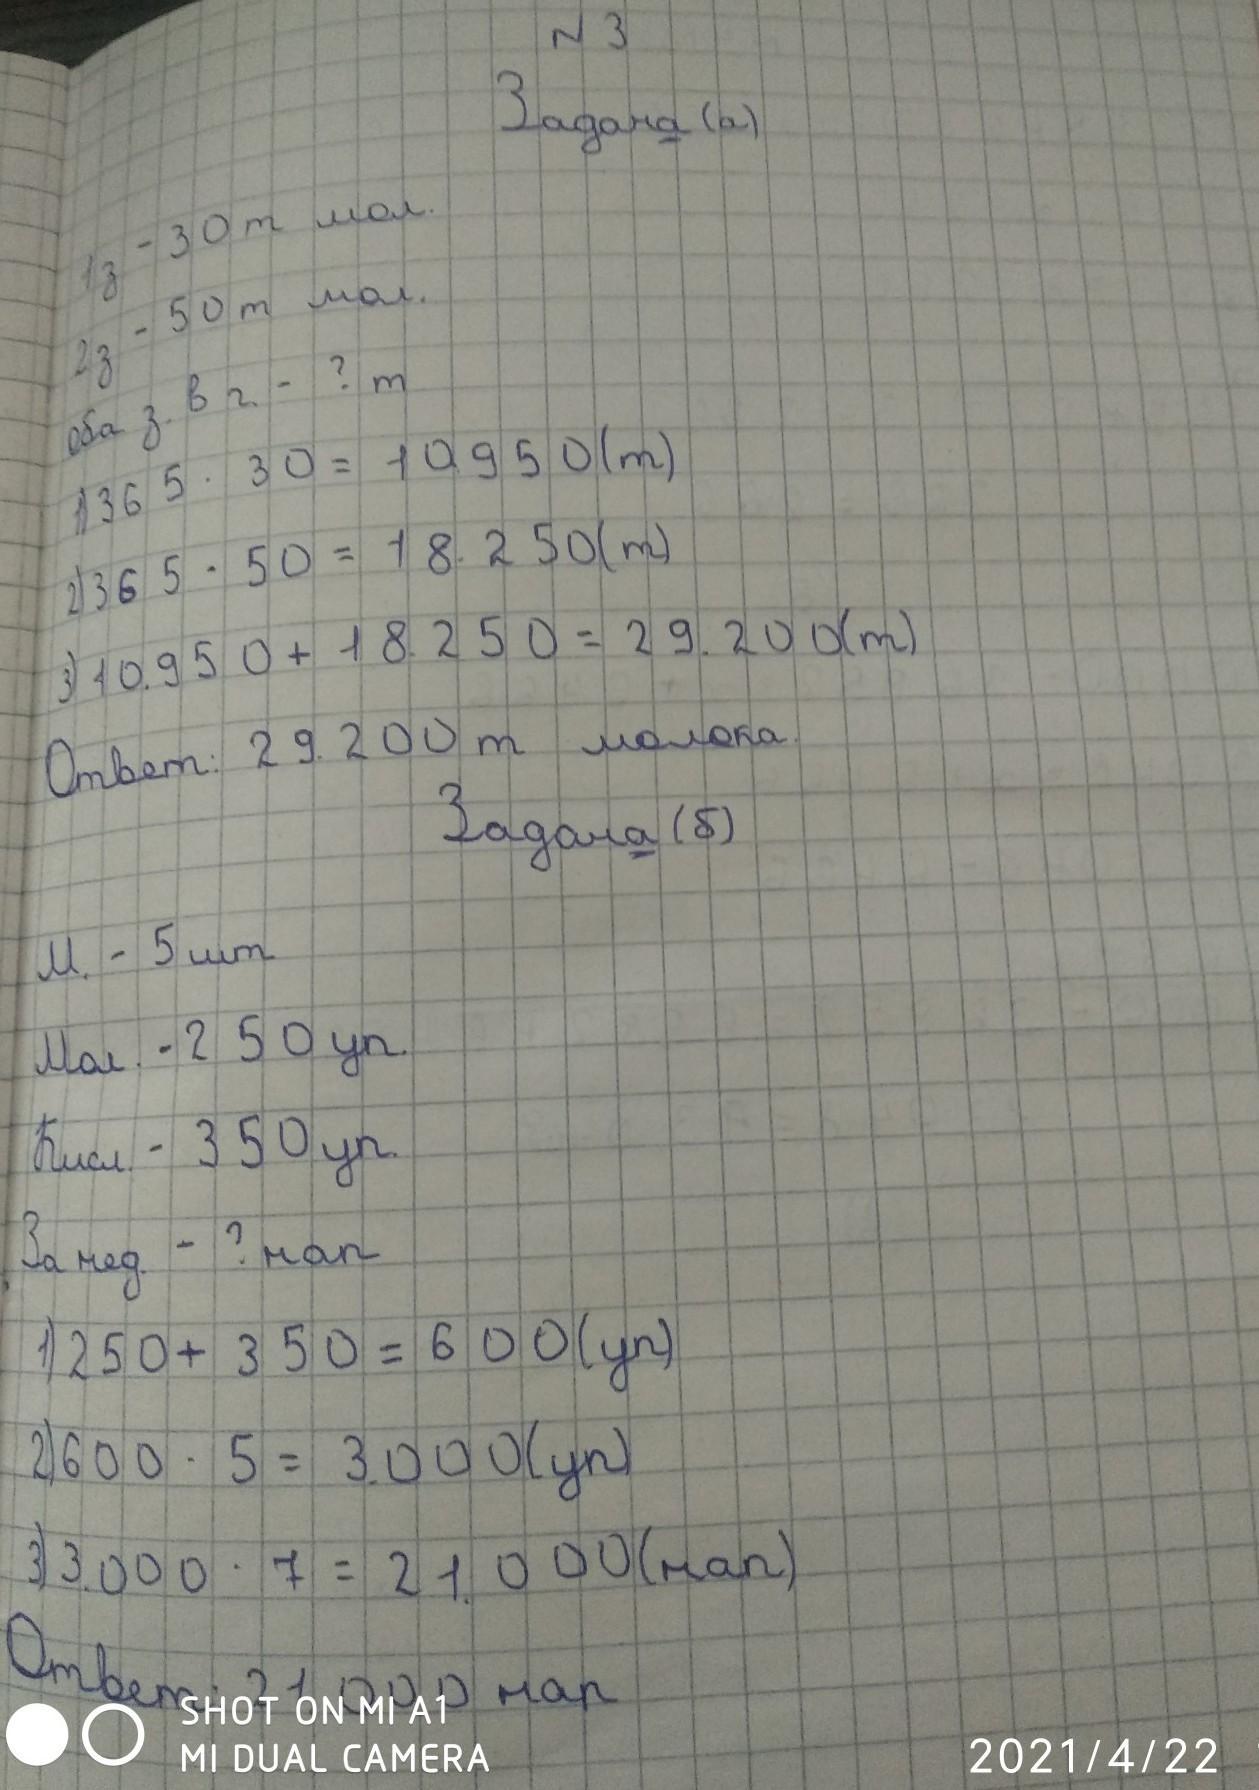 N 3
Задача (а)
1з - 30 т мол.
2з - 50 т мол.
оба з. в г. - ? т
1) 365 · 30 = 10.950 (т)
2) 365 · 50 = 18.250 (т)
3) 10.950 + 18.250 = 29.200 (т)
Ответ: 29.200 т молока.
Задача (б)
М. - 5 шт
Мол. - 250 уп.
Кисл. - 350 уп.
За нед. - ? нап
1) 250 + 350 = 600 (уп)
2) 600 · 5 = 3.000 (уп)
3) 3.000 · 7 = 21.000 (нап)
Ответ: 21.000 нап
SHOT ON MI A1
MI DUAL CAMERA
2021/4/22